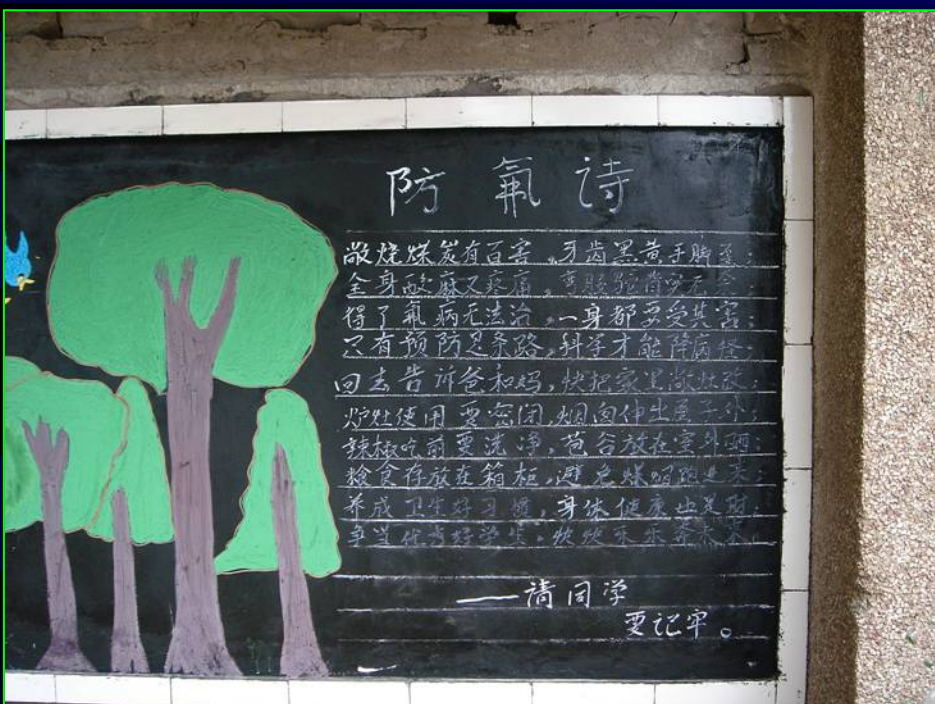 防氟诗
敞烧煤炭有百害，牙齿黑黄手脚
全身酸麻又疼痛，弯腰驼背
得了氟病无法治，一身都要受其害；
只有预防是条路，科学才能降病怪；
回去告诉爸和妈，快把家里敞灶改；
炉灶使用要密闭，烟囱伸出屋子外；
辣椒吃前要洗净，苞谷放在室外晒；
粮食存放在箱柜，避免煤烟跑进来；
养成卫生好习惯，身体健康也是财；
争当优秀好学生，快快乐乐奔未来。
——请同学
要记牢。